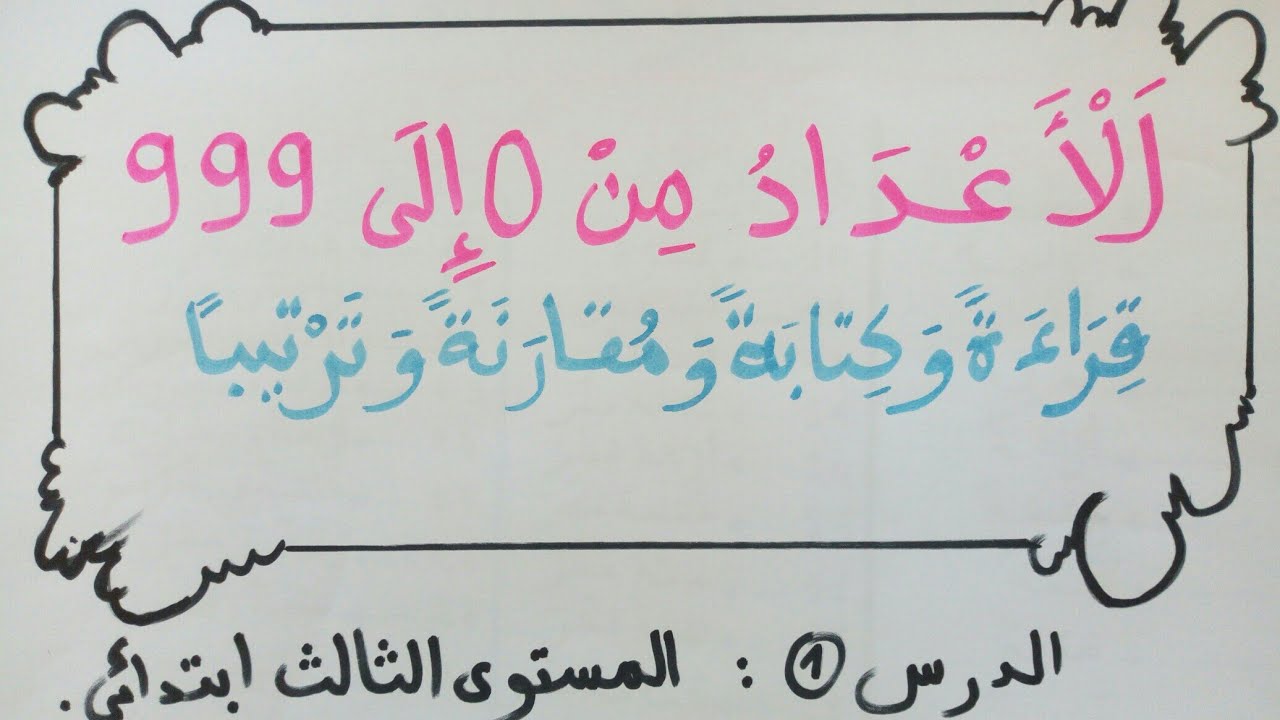 اَلْأَعْدَادُ مِنْ 0 إِلَى 999
قِرَاءَةً وَكِتابَةً وَمُقارَنَةً وَتَرْتيبًا
الدرس 1 : المستوى الثالث ابتدائي.